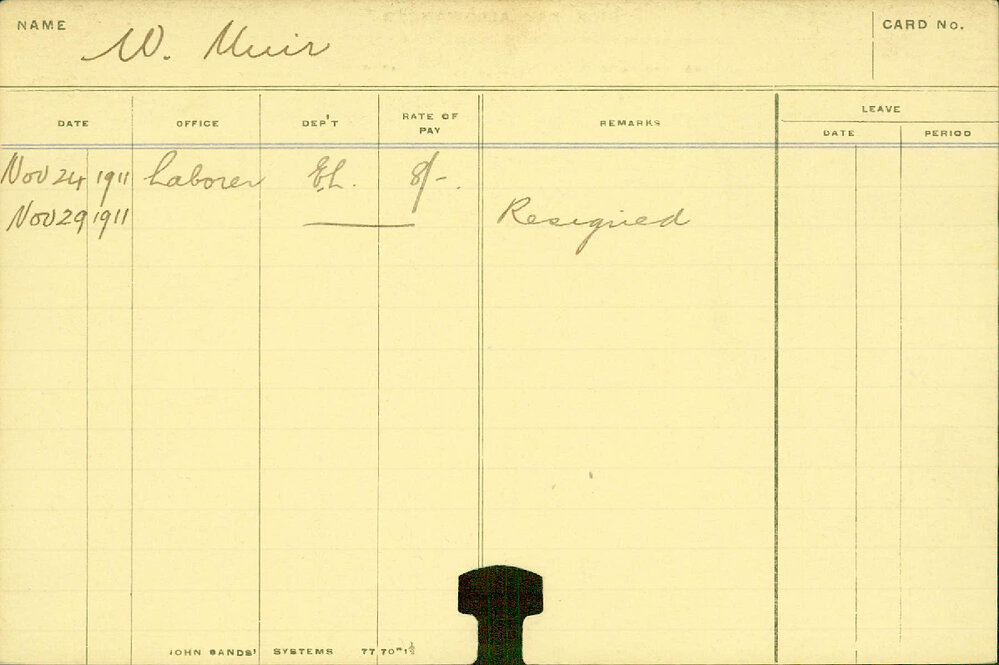 NAME W. Muir CARD No.
LEAVE
DATE OFFICE DEP'T RATE OF PAY REMARKS DATE PERIOD
Nov 24 1911 Laborer E.L. 8/-.
Nov 29 1911 Resigned
JOHN SANDS' SYSTEMS